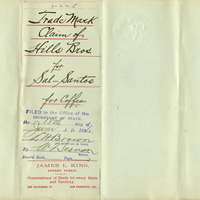 Trade Mark
Claim of
Hills Bros.
for
Sal-Santos
for Coffee
FILED in the Office of the
SECRETARY OF STATE
the 18th day of
June A.D. 
Brown
By
Record Book Page
JAMES L. KING,
NOTARY PUBLIC,
Commissioner of Deeds for every State
and Territory